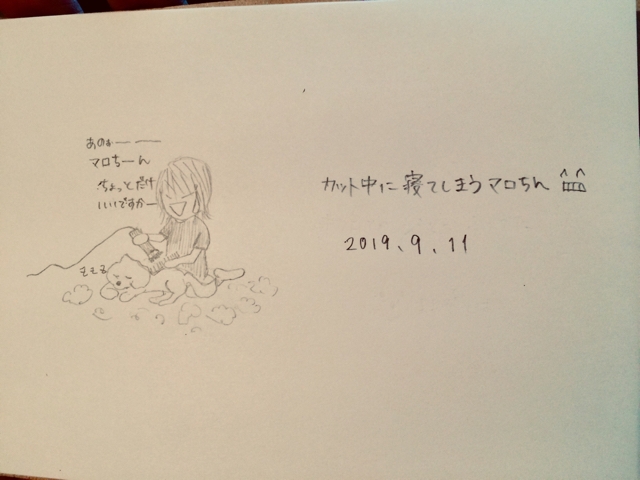 あのぉーー
マロちーん
ちょっとだけ
いいですかー
カット中に寝てしまうマロちん
2019、9、11